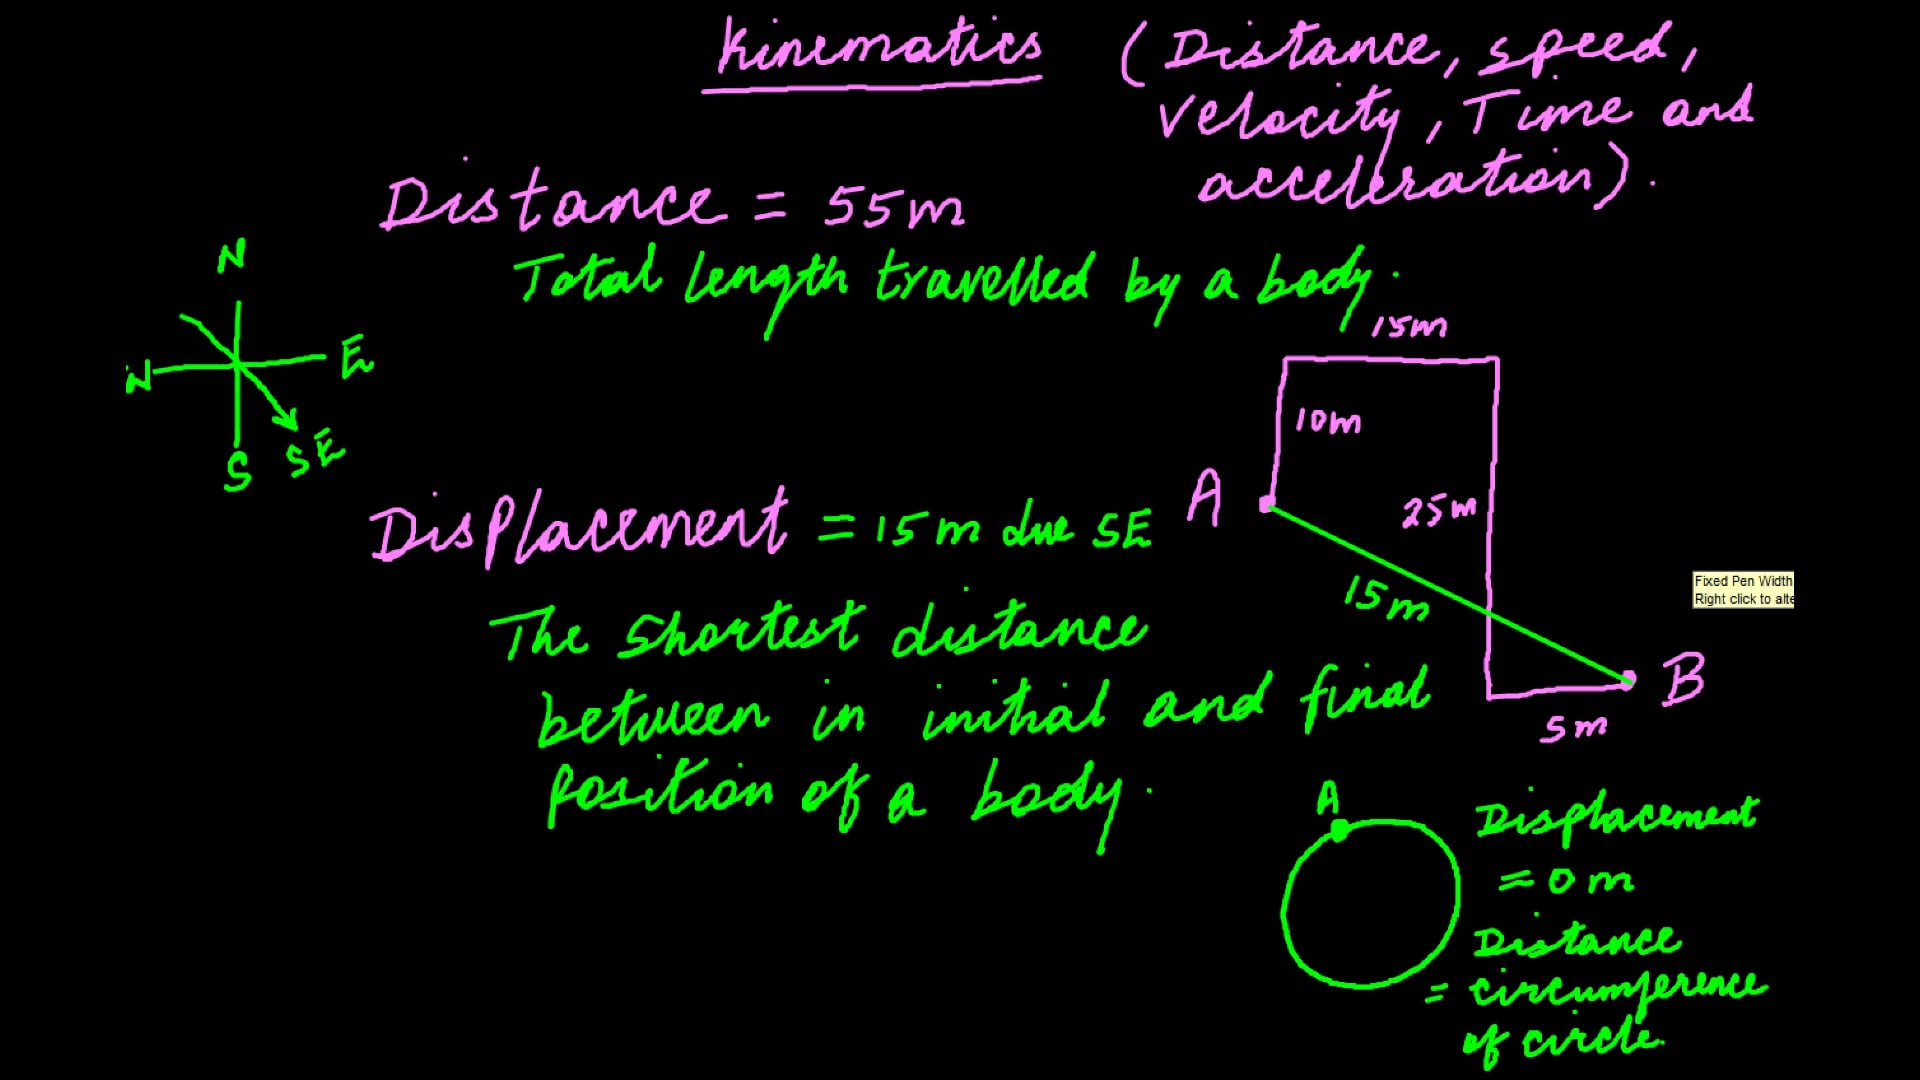 Kinematics (Distance, speed,
velocity, Time and
acceleration).
Distance = 55m
Total length travelled by a body.
N
W
E
S
SE
15m
10m
A
25m
15m
B
5m
Displacement = 15m due SE
The shortest distance
between in initial and final
position of a body.
Fixed Pen Width
Right click to alte
A
Displacement
= 0 m
Distance
= circumference
of circle.